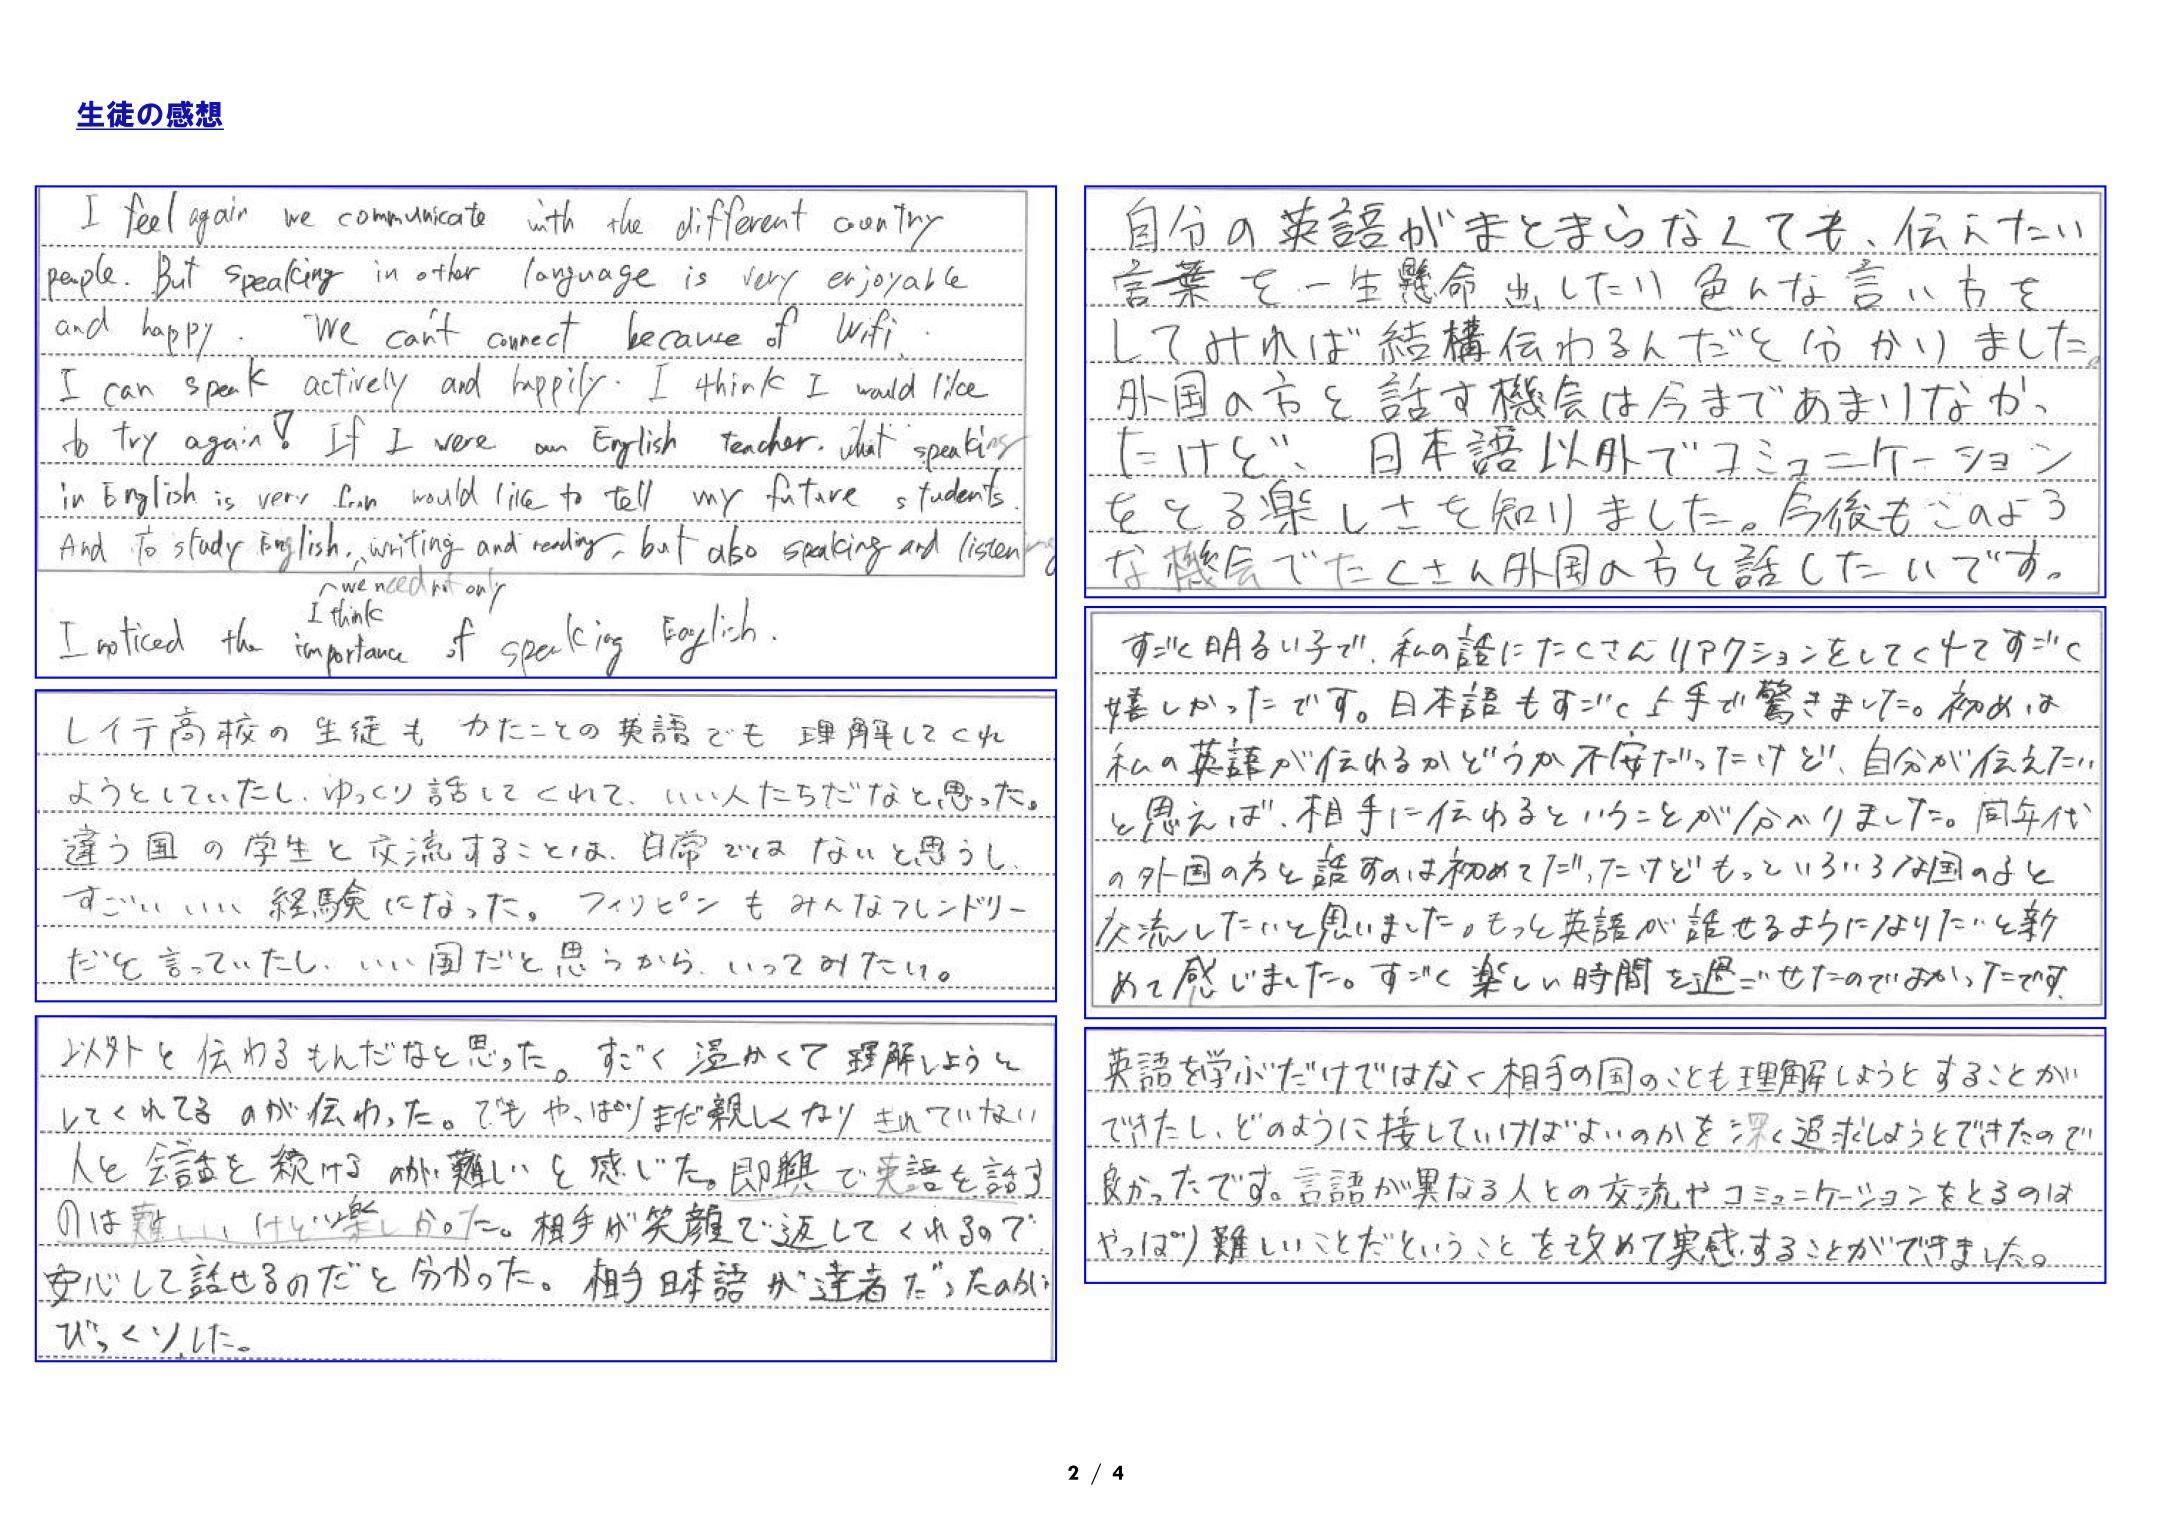 生徒の感想
I feel again we communicate with the different country
people. But speaking in other language is very enjoyable
and happy. We can't connect because of Wifi.
I can speak actively and happily. I think I would like
to try again! If I were an English teacher. what speaking
in English is very fun would like to tell my future students.
And to study English, writing and reading, but also speaking and listening
we need not only
I think
I noticed the importance of speaking English.
レイテ高校の生徒もかたことの英語でも理解してくれ
ようとしていたし、ゆっくり話してくれて、いい人たちだなと思った。
違う国の学生と交流することは、日常ではないと思うし、
すごいいい経験になった。フィリピンもみんなフレンドリー
だと言っていたし、いい国だと思うから、いってみたい。
以外と伝わるもんだなと思った。すごく温かくて理解しようと
してくれてるのが伝わった。でもやっぱりまだ親しくなりきれていない
人と会話を続けるのが難しいと感じた。即興で英語を話す
のは難しいけど楽しかった。相手が笑顔で返してくれるので
安心して話せるのだと分かった。相手日本語が達者だったのが
びっくりした。
自分の英語がまとまらなくても、伝えたい
言葉を一生懸命出したり色んな言い方を
してみれば結構伝わるんだと分かりました。
外国の方と話す機会は今まであまりなかっ
たけど、日本語以外でコミュニケーション
をとる楽しさを知りました。今後もこのよう
な機会でたくさん外国の方と話したいです。
すごく明るい子で、私の話にたくさんリアクションをしてくれてすごく
嬉しかったです。日本語もすごく上手で驚きました。初めは
私の英語が伝わるかどうか不安だったけど、自分が伝えたい
と思えば、相手に伝わるということが分かりました。同年代
の外国の方と話すのは初めてだったけどもっといろいろな国の子と
交流したいと思いました。もっと英語が話せるようになりたいと新
めて感じました。すごく楽しい時間を過ごせたのでよかったです。
英語を学ぶだけではなく相手の国のことも理解しようとすることが
できたし、どのように接していけばよいのかを深く追求しようとできたので
良かったです。言語が異なる人との交流やコミュニケーションをとるのは
やっぱり難しいことだということを改めて実感することができました。
2 / 4